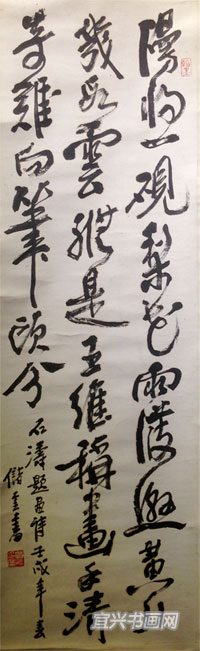 漫將一硯梨花雨潑黄山
幾段雲縱是王維稱畫手清
奇難向筆頭分
石濤題畫詩壬戌年春
儲雲書
宜兴书画网